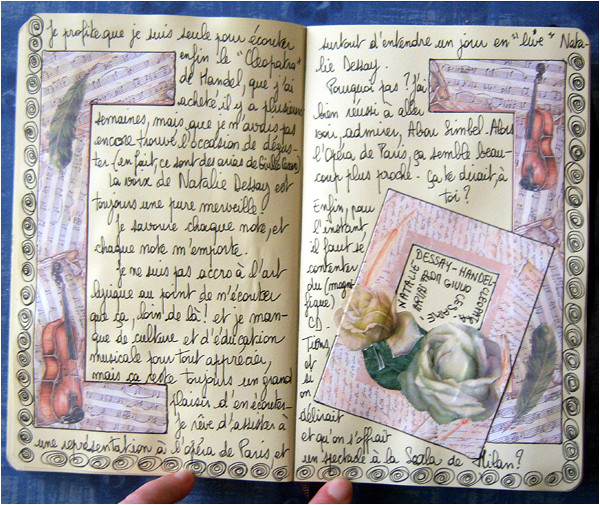 Je profite que je suis seule pour écouter
enfin le "Cléopatra"
de Handel, que j'ai
acheté il y a plusieurs
semaines, mais que je n'avais pas
encore trouvé l'occasion de dégus-
ter (en fait, ce sont des arias de Giulio Cesare)
La voix de Natalie Dessay est
toujours une pure merveille!
Je savoure chaque note, et
chaque note m'emporte.
Je ne suis pas accro à l'art
lyrique au point de n'écouter
que ça, loin de là! et je man-
que de culture et d'éducation
musicale pour tout apprécier
mais ça reste toujours un grand
plaisir d'en écouter-
Je rêve d'assister à
une représentation à l'opéra de Paris et
surtout d'entendre un jour en "live" Nata-
lie Dessay.
Pourquoi pas? J'ai
bien réussi à aller
voir, admirer, Abou Simbel. Alors
l'Opéra de Paris, ça semble beau-
coup plus proche. Ça te dirait, à
toi?
Enfin, pour
l'instant
il faut se
contenter
du (magni-
fique)
CD.
Tiens,
et
si
on
délirait
et qu'on s'offrait
un spectacle à la Scala de Milan?
NATALIE
DESSAY-HANDEL-
GIULIO
CESARE